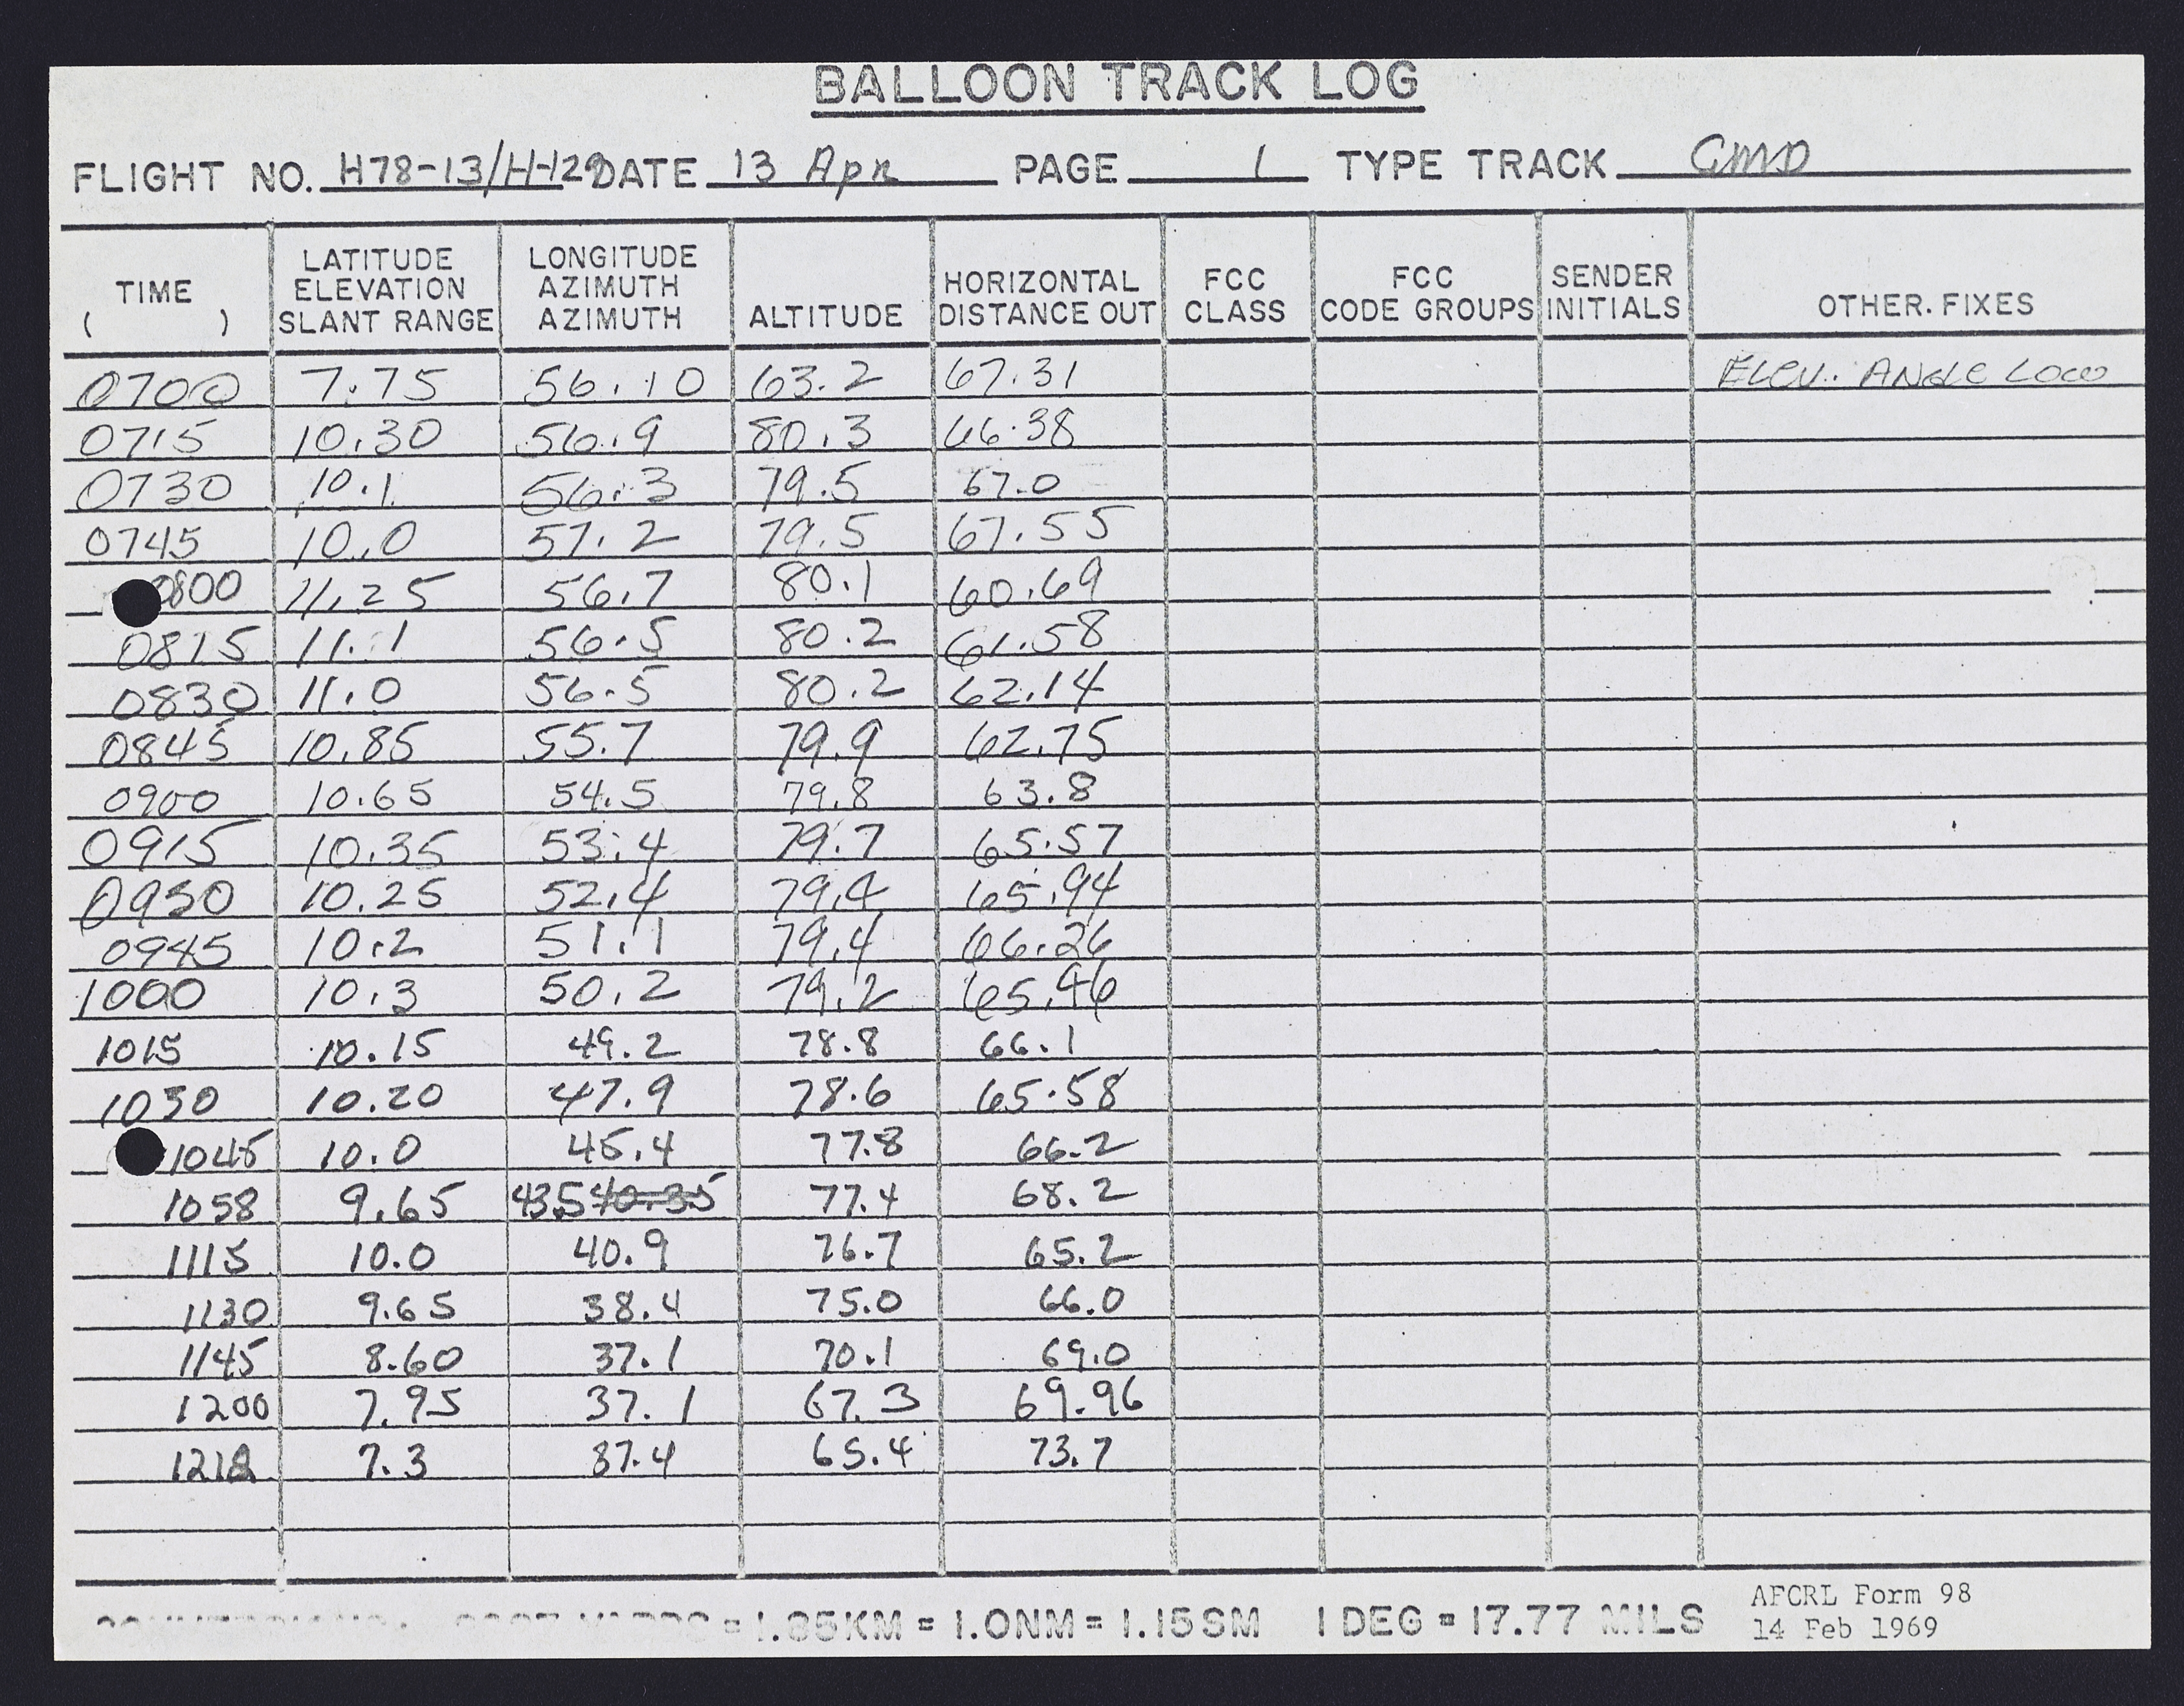 BALLOON TRACK LOG
FLIGHT NO. H78-13/H-129 DATE 13 Apr PAGE 1 TYPE TRACK GMD
TIME ( ) LATITUDE ELEVATION SLANT RANGE LONGITUDE AZIMUTH AZIMUTH ALTITUDE HORIZONTAL DISTANCE OUT FCC CLASS FCC CODE GROUPS SENDER INITIALS OTHER. FIXES
0700 7.75 56.10 63.2 67.31 Elev. Angle Low
0715 10.30 56.9 80.3 66.38
0730 10.1 56.3 79.5 67.0
0745 10.0 57.2 79.5 67.55
0800 11.25 56.7 80.1 60.69
0815 11.1 56.5 80.2 61.58
0830 11.0 56.5 80.2 62.14
0845 10.85 55.7 79.9 62.75
0900 10.65 54.5 79.8 63.8
0915 10.35 53.4 79.7 65.57
0930 10.25 52.4 79.4 65.94
0945 10.2 51.1 79.4 66.26
1000 10.3 50.2 79.2 65.46
1015 10.15 49.2 78.8 66.1
1030 10.20 47.9 78.6 65.58
1045 10.0 45.4 77.8 66.2
1058 9.65 43.5 40.35 77.4 68.2
1115 10.0 40.9 76.7 65.2
1130 9.65 38.4 75.0 66.0
1145 8.60 37.1 70.1 69.0
1200 7.95 37.1 67.3 69.96
1218 7.3 37.4 65.4 73.7
= 1.85KM = 1.0NM = 1.15SM 1 DEG = 17.77 MILS
AFCRL Form 98
14 Feb 1969